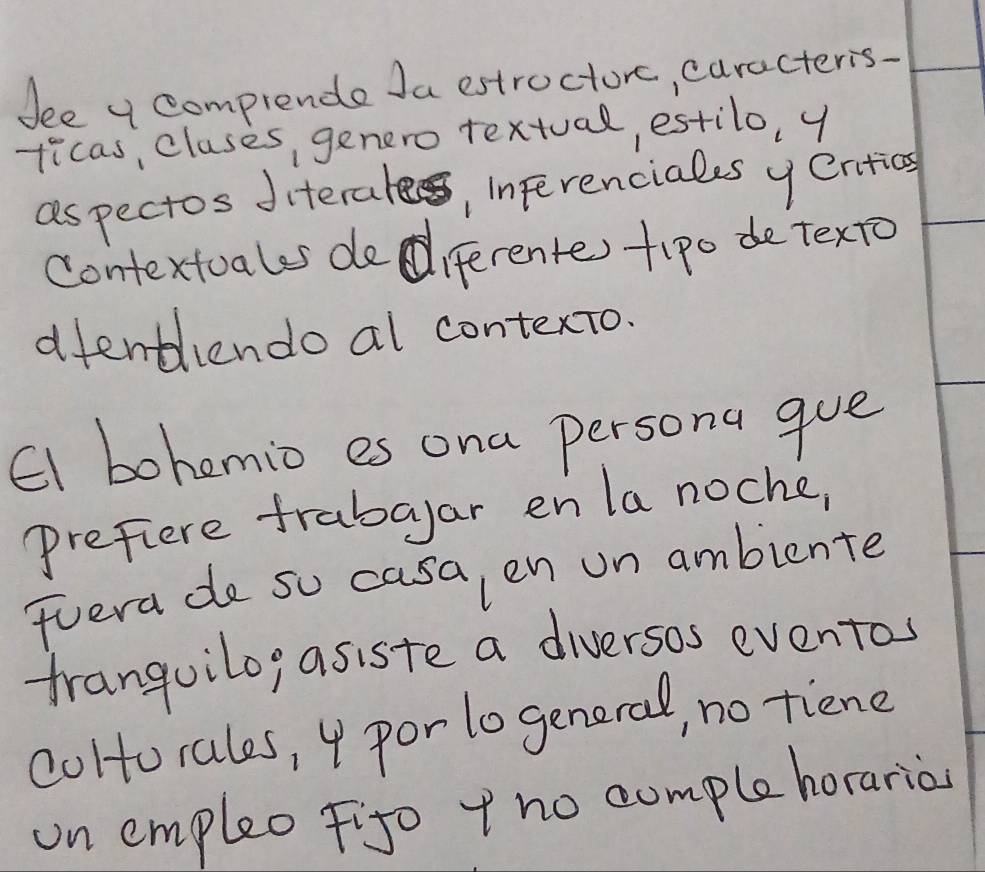 Lee y comprende la estructura, caracteris-
ticas, clases, genero textual, estilo, y
aspectos literales, inferenciales y criticos
contextuales de diferentes tipo de texto
atentdiendo al contexto.
El bohemio es una persona que
prefiere trabajar en la noche,
fuera de su casa, en un ambiente
tranquilo; asiste a diversos eventos
culturales, y por lo general, no tiene
un empleo fijo y no cumple horarios